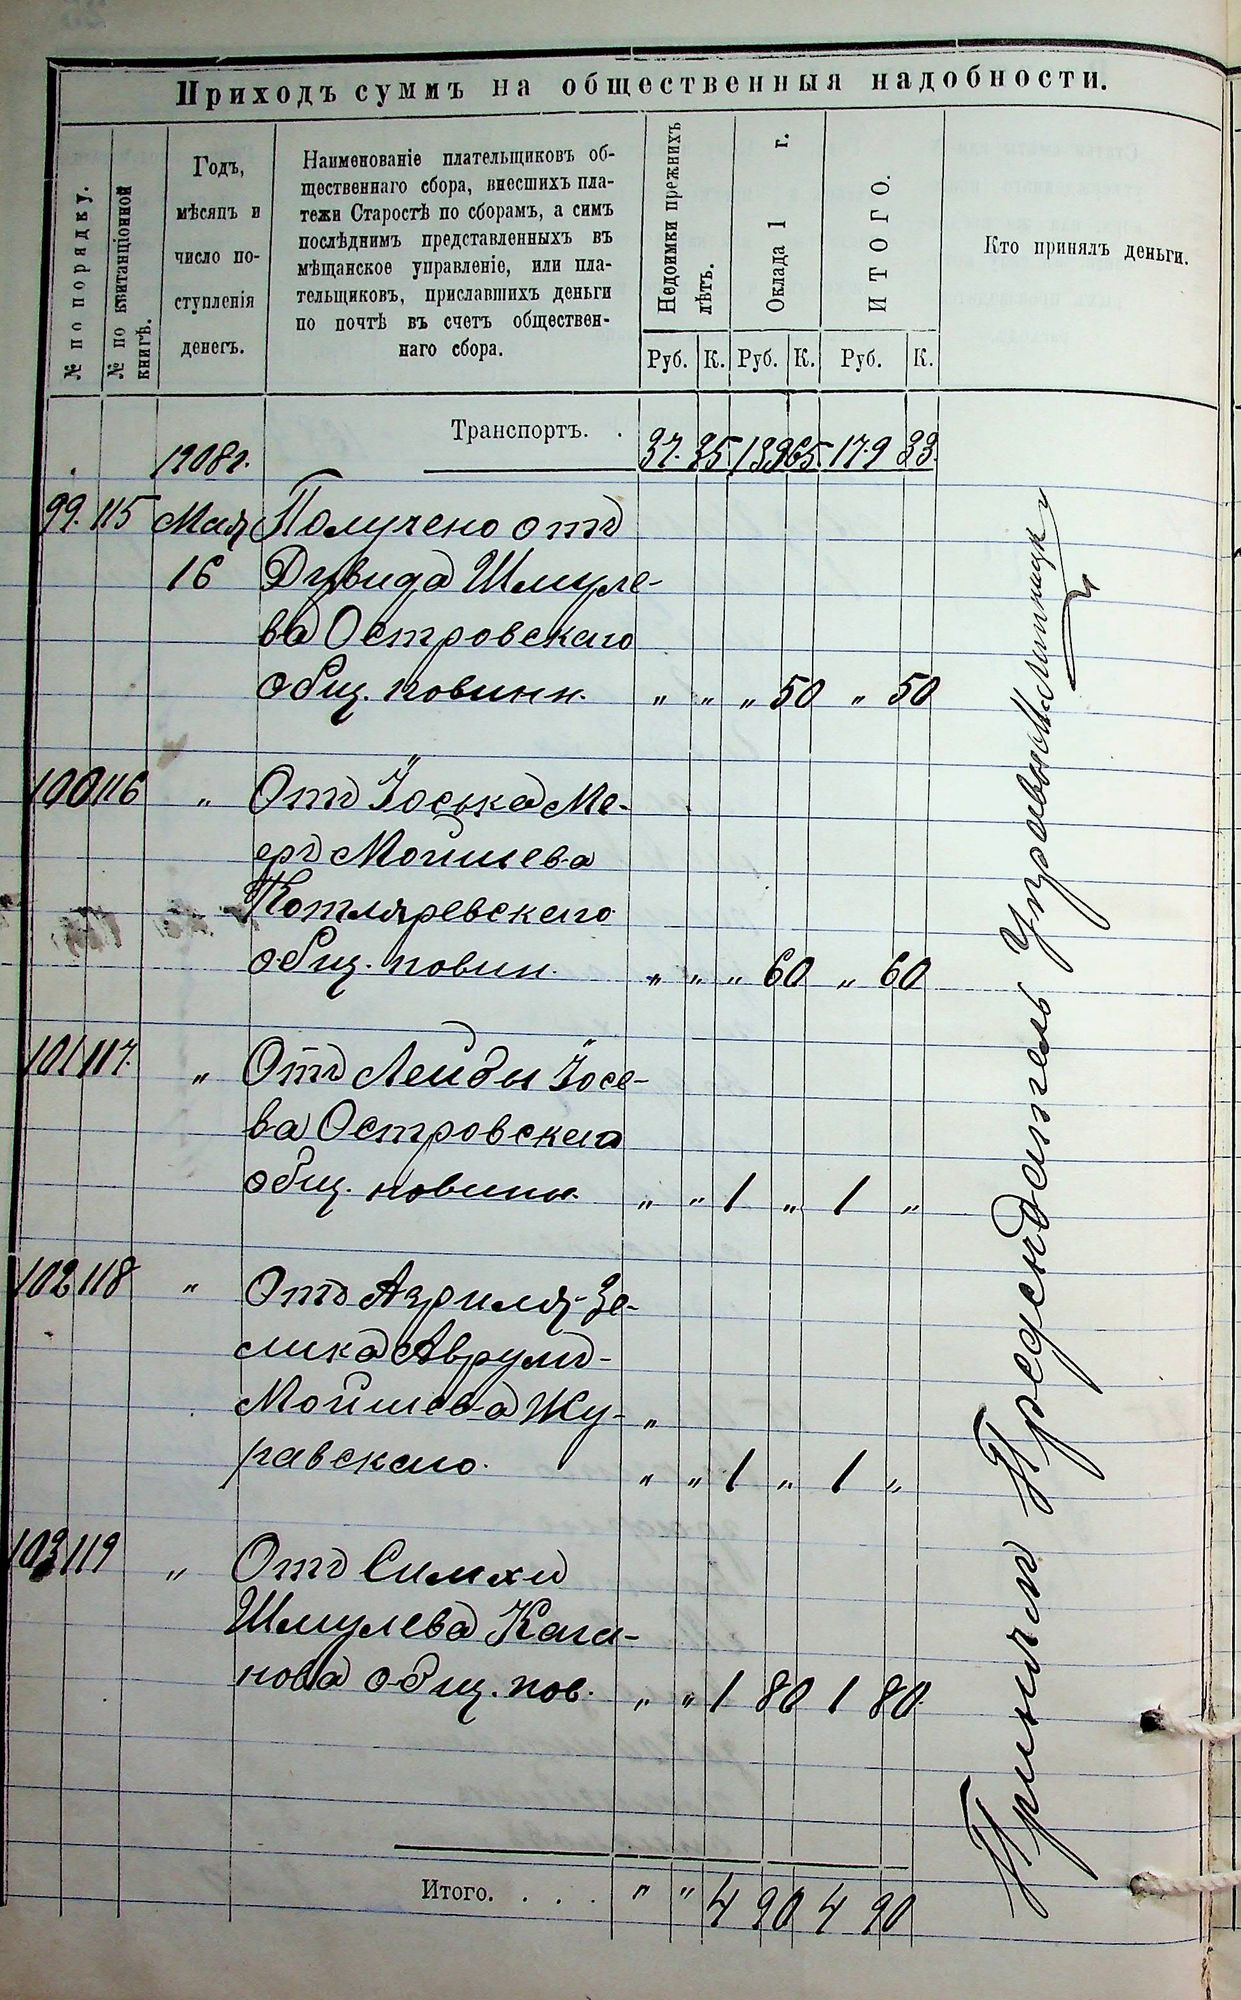 Приходъ суммъ на общественныя надобности.
№ по порядку.
№ по квитанціонной книгѣ.
Годъ,
мѣсяцъ и
число по-
ступленія
денегъ.
Наименованіе плательщиковъ об-
щественнаго сбора, внесшихъ пла-
тежи Старостѣ по сборамъ, а симъ
послѣднимъ представленныхъ въ
мѣщанское управленіе, или пла-
тельщиковъ, приславшихъ деньги
по почтѣ въ счетъ обществен-
наго сбора.
Недоимки прежнихъ лѣтъ.
Оклада 1 г.
ИТОГО.
Кто принялъ деньги.
Руб. К. Руб. К. Руб. К.
Транспортъ. . 37. 35 139 65. 17.9 33.
1908г.
99. 115 Мая Получено отъ
16 Дувида Шмуле-
ва Островскаго
общ. повинн. „ „ „ 50 „ 50
100 116 „ Отъ Іоська Ме-
еръ Мойшева
Котляревскаго
общ. повин. „ „ „ 60 „ 60
101 117. „ Отъ Лейбы Іосе-
ва Островскаго
общ. повинн. „ „ 1 „ 1 „
102 118 „ Отъ Азриля-Зе-
лика Аврумъ-
Мойшева Жу- „
равскаго. „ „ 1 „ 1 „
103 119 „ Отъ Симхи
Шмулева Кага-
нова общ. пов. „ „ 1 80 1 80.
Итого. . . . „ „ 4 90 4 90
Принялъ Предсѣдатель Управы